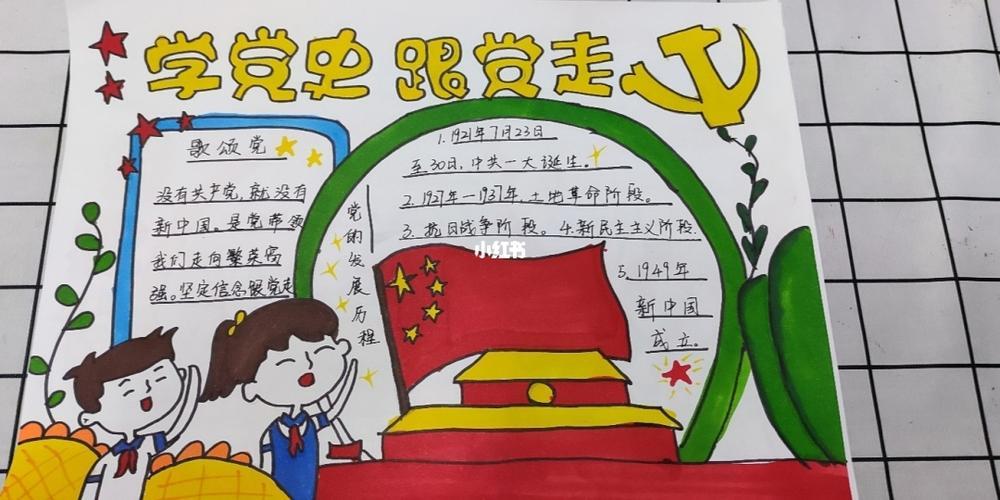 学党史 跟党走
歌颂党
没有共产党,就没有
新中国。是党带领
我们走向繁荣富
强。坚定信念跟党走
党的发展历程
1.1921年7月23日
至30日,中共一大诞生。
2.1927年—1937年,土地革命阶段。
3.抗日战争阶段。4.新民主主义阶段.
5.1949年
新中国
成立。
小红书